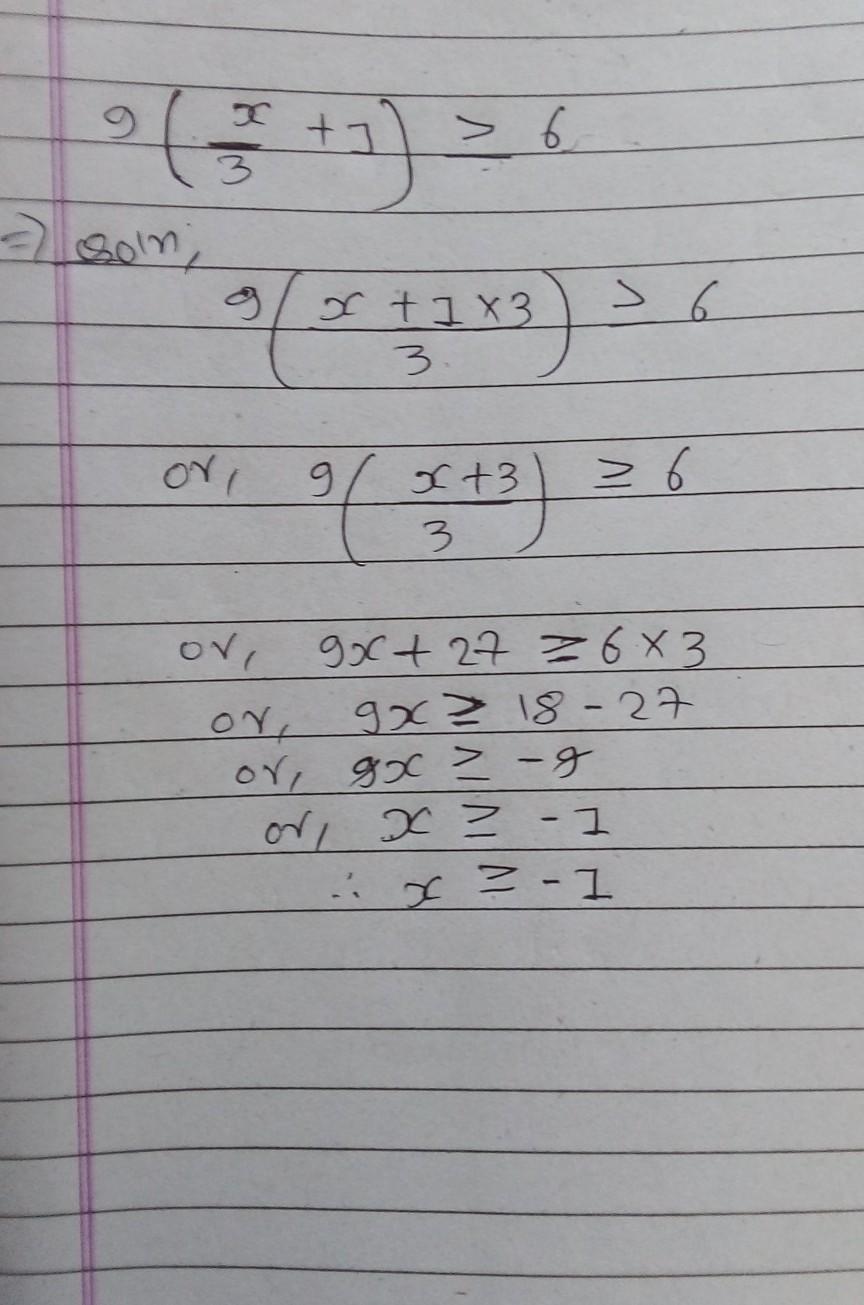 9(x/3 + 1) ≥ 6
=> soln,
9((x + 1 × 3)/3) ≥ 6
or, 9((x+3)/3) ≥ 6
or, 9x + 27 ≥ 6 × 3
or, 9x ≥ 18 - 27
or, 9x ≥ -9
or, x ≥ -1
∴ x ≥ -1